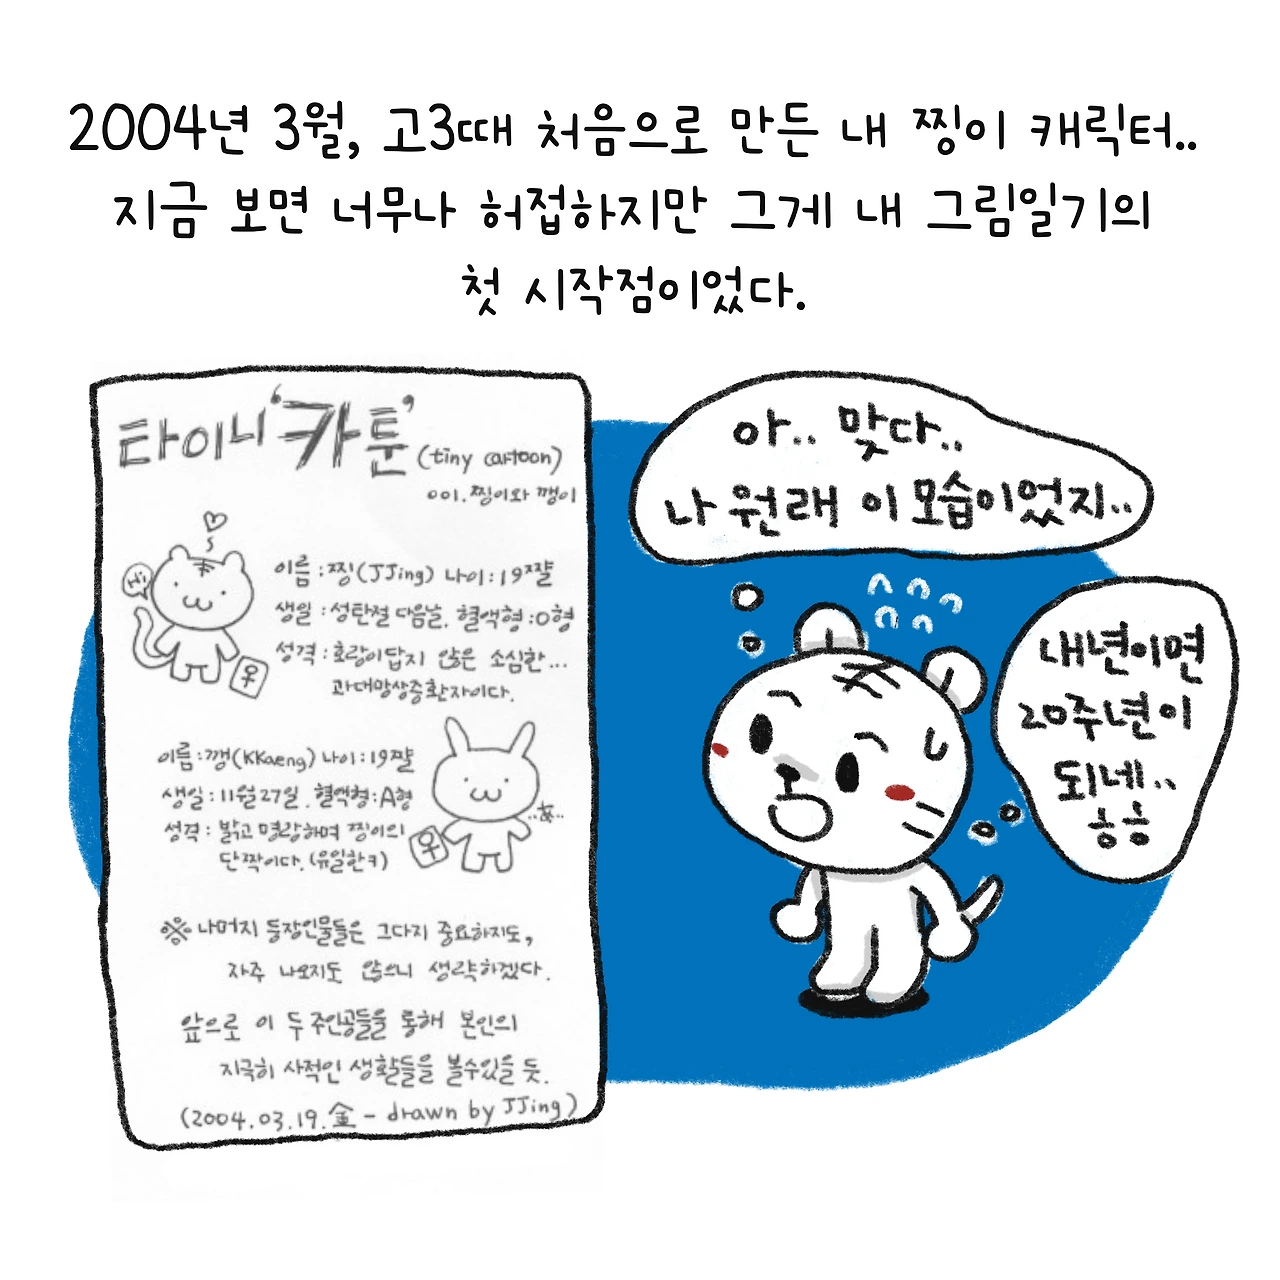 2004년 3월, 고3때 처음으로 만든 내 찡이 캐릭터..
지금 보면 너무나 허접하지만 그게 내 그림일기의
첫 시작점이었다.
타이니 '카툰' (tiny cartoon)
001. 찡이와 깽이
Hi
이름 : 찡(JJing) 나이 : 19쨜
생일 : 성탄절 다음날. 혈액형 : O형
성격 : 호랑이답지 않은 소심한...
과대망상증환자이다.
이름 : 깽(KKaeng) 나이 : 19쨜
생일 : 11월 27일. 혈액형 : A형
성격 : 밝고 명랑하며 찡이의
단짝이다. (유일한ㅋ)
※ 나머지 등장인물들은 그다지 중요하지도,
자주 나오지도 않으니 생략하겠다.
앞으로 이 두 주인공들을 통해 본인의
지극히 사적인 생활들을 볼수있을 듯.
(2004.03.19.金 - drawn by JJing)
아.. 맞다..
나 원래 이 모습이었지..
내년이면
20주년이
되네..
ㅎㅎ